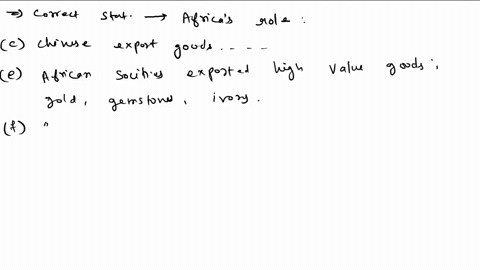 ⇒ Correct stat. → Africa's role :
(c) Chinese export goods ....
(e) African Socities exported high value goods ;
gold, gemstones, ivory.
(f) "